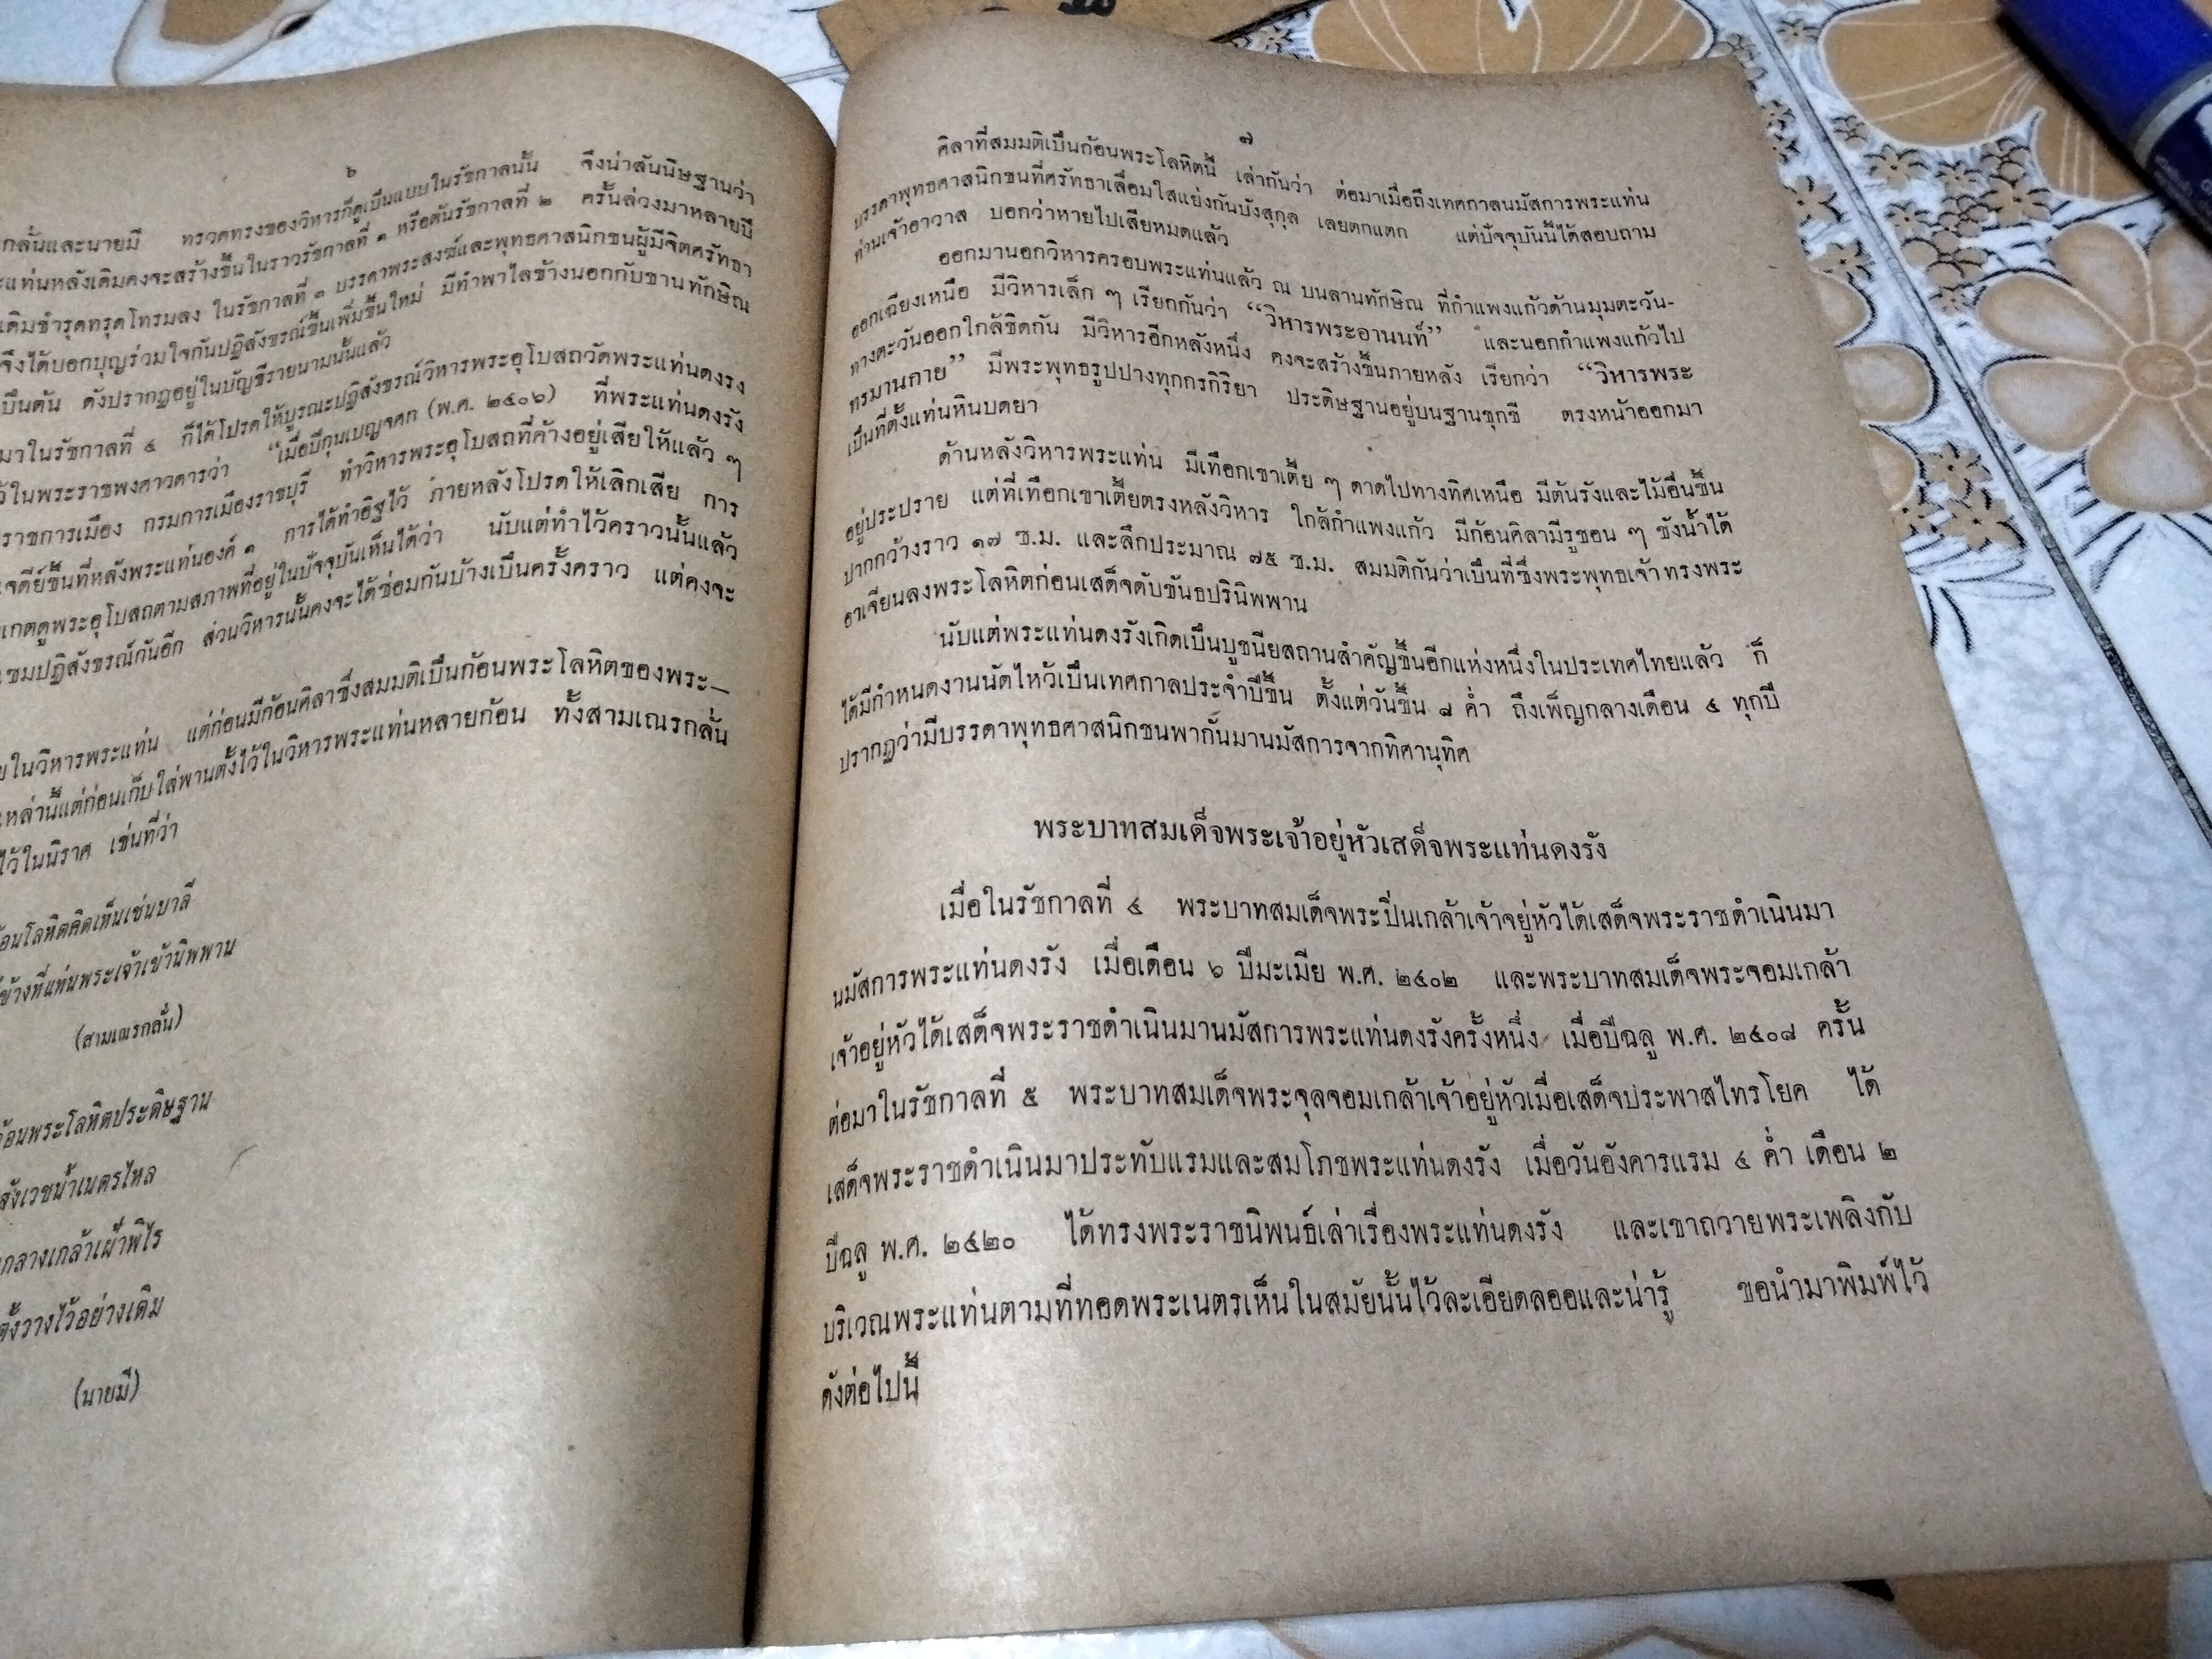 ๖
กลั่นและนายมี ทรวดทรงของวิหารก็ดูเป็นแบบในรัชกาลนั้น จึงน่าสันนิษฐานว่า
ะแท่นหลังเดิมคงจะสร้างขึ้นในราวรัชกาลที่ ๑ หรือต้นรัชกาลที่ ๒ ครั้นล่วงมาหลายปี
เดิมชำรุดทรุดโทรมลง ในรัชกาลที่ ๓ บรรดาพระสงฆ์และพุทธศาสนิกชนผู้มีจิตศรัทธา
จึงได้บอกบุญร่วมใจกันปฏิสังขรณ์ขึ้นเพิ่มขึ้นใหม่ มีทำพาไลข้างนอกกับชานทักษิณ
เป็นต้น ดังปรากฏอยู่ในบัญชีรายนามนั้นแล้ว
มาในรัชกาลที่ ๔ ก็ได้โปรดให้บูรณะปฏิสังขรณ์วิหารพระอุโบสถวัดพระแท่นดงรัง
ว้ในพระราชพงศาวดารว่า “เมื่อปีกุนเบญจศก (พ.ศ. ๒๔๐๖) ที่พระแท่นดงรัง
ราชการเมือง กรมการเมืองราชบุรี ทำวิหารพระอุโบสถที่ค้างอยู่เสียให้แล้ว ๆ
เจดีย์ขึ้นที่หลังพระแท่นองค์ ๑ การได้ทำอิฐไว้ ภายหลังโปรดให้เลิกเสีย การ
เกตดูพระอุโบสถตามสภาพที่อยู่ในปัจจุบันเห็นได้ว่า นับแต่ทำไว้คราวนั้นแล้ว
แซมปฏิสังขรณ์กันอีก ส่วนวิหารนั้นคงจะได้ซ่อมกันบ้างเป็นครั้งคราว แต่คงจะ
ยในวิหารพระแท่น แต่ก่อนมีก้อนศิลาซึ่งสมมติเป็นก้อนพระโลหิตของพระ–
เหล่านี้แต่ก่อนเก็บใส่พานตั้งไว้ในวิหารพระแท่นหลายก้อน ทั้งสามเณรกลั่น
ไว้ในนิราศ เช่นที่ว่า
้อนโลหิตคิดเห็นเช่นบาลี
ข้างที่แท่นพระเจ้าเข้านิพพาน
(สามเณรกลั่น)
ก้อนพระโลหิตประดิษฐาน
สังเวชน้ำเนตรไหล
กลางเกล้าเฝ้าพิไร
ตั้งวางไว้อย่างเดิม
(นายมี)
๗
ศิลาที่สมมติเป็นก้อนพระโลหิตนี้ เล่ากันว่า ต่อมาเมื่อถึงเทศกาลนมัสการพระแท่น
บรรดาพุทธศาสนิกชนที่ศรัทธาเลื่อมใสแย่งกันบังสุกุล เลยตกแตก แต่ปัจจุบันนี้ได้สอบถาม
ท่านเจ้าอาวาส บอกว่าหายไปเสียหมดแล้ว
ออกมานอกวิหารครอบพระแท่นแล้ว ณ บนลานทักษิณ ที่กำแพงแก้วด้านมุมตะวัน-
ออกเฉียงเหนือ มีวิหารเล็ก ๆ เรียกกันว่า “วิหารพระอานนท์” และนอกกำแพงแก้วไป
ทางตะวันออกใกล้ชิดกัน มีวิหารอีกหลังหนึ่ง คงจะสร้างขึ้นภายหลัง เรียกว่า “วิหารพระ
ทรมานกาย” มีพระพุทธรูปปางทุกกรกิริยา ประดิษฐานอยู่บนฐานชุกชี ตรงหน้าออกมา
เป็นที่ตั้งแท่นหินบดยา
ด้านหลังวิหารพระแท่น มีเทือกเขาเตี้ย ๆ ดาดไปทางทิศเหนือ มีต้นรังและไม้อื่นขึ้น
อยู่ประปราย แต่ที่เทือกเขาเตี้ยตรงหลังวิหาร ใกล้กำแพงแก้ว มีก้อนศิลามีรูชอน ๆ ขังน้ำได้
ปากกว้างราว ๑๗ ซ.ม. และลึกประมาณ ๗๕ ซ.ม. สมมติกันว่าเป็นที่ซึ่งพระพุทธเจ้าทรงพระ
อาเจียนลงพระโลหิตก่อนเสด็จดับขันธปรินิพพาน
นับแต่พระแท่นดงรังเกิดเป็นบูชนียสถานสำคัญขึ้นอีกแห่งหนึ่งในประเทศไทยแล้ว ก็
ได้มีกำหนดงานนัดไหว้เป็นเทศกาลประจำปีขึ้น ตั้งแต่วันขึ้น ๘ ค่ำ ถึงเพ็ญกลางเดือน ๔ ทุกปี
ปรากฏว่ามีบรรดาพุทธศาสนิกชนพากันมานมัสการจากทิศานุทิศ
พระบาทสมเด็จพระเจ้าอยู่หัวเสด็จพระแท่นดงรัง
เมื่อในรัชกาลที่ ๔ พระบาทสมเด็จพระปิ่นเกล้าเจ้าจยู่หัวได้เสด็จพระราชดำเนินมา
นมัสการพระแท่นดงรัง เมื่อเดือน ๖ ปีมะเมีย พ.ศ. ๒๔๐๒ และพระบาทสมเด็จพระจอมเกล้า
เจ้าอยู่หัวได้เสด็จพระราชดำเนินมานมัสการพระแท่นดงรังครั้งหนึ่ง เมื่อปีฉลู พ.ศ. ๒๔๐๘ ครั้น
ต่อมาในรัชกาลที่ ๕ พระบาทสมเด็จพระจุลจอมเกล้าเจ้าอยู่หัวเมื่อเสด็จประพาสไทรโยค ได้
เสด็จพระราชดำเนินมาประทับแรมและสมโภชพระแท่นดงรัง เมื่อวันอังคารแรม ๔ ค่ำ เดือน ๒
ปีฉลู พ.ศ. ๒๔๒๐ ได้ทรงพระราชนิพนธ์เล่าเรื่องพระแท่นดงรัง และเขาถวายพระเพลิงกับ
บริเวณพระแท่นตามที่ทอดพระเนตรเห็นในสมัยนั้นไว้ละเอียดลออและน่ารู้ ขอนำมาพิมพ์ไว้
ดังต่อไปนี้